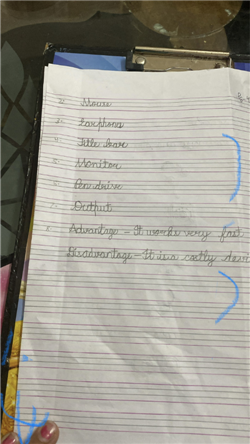 Mouse
Earphone
Title bar
Monitor
Pen drive
Output
Advantage - It works very fast
Disadvantage - It is a costly devi